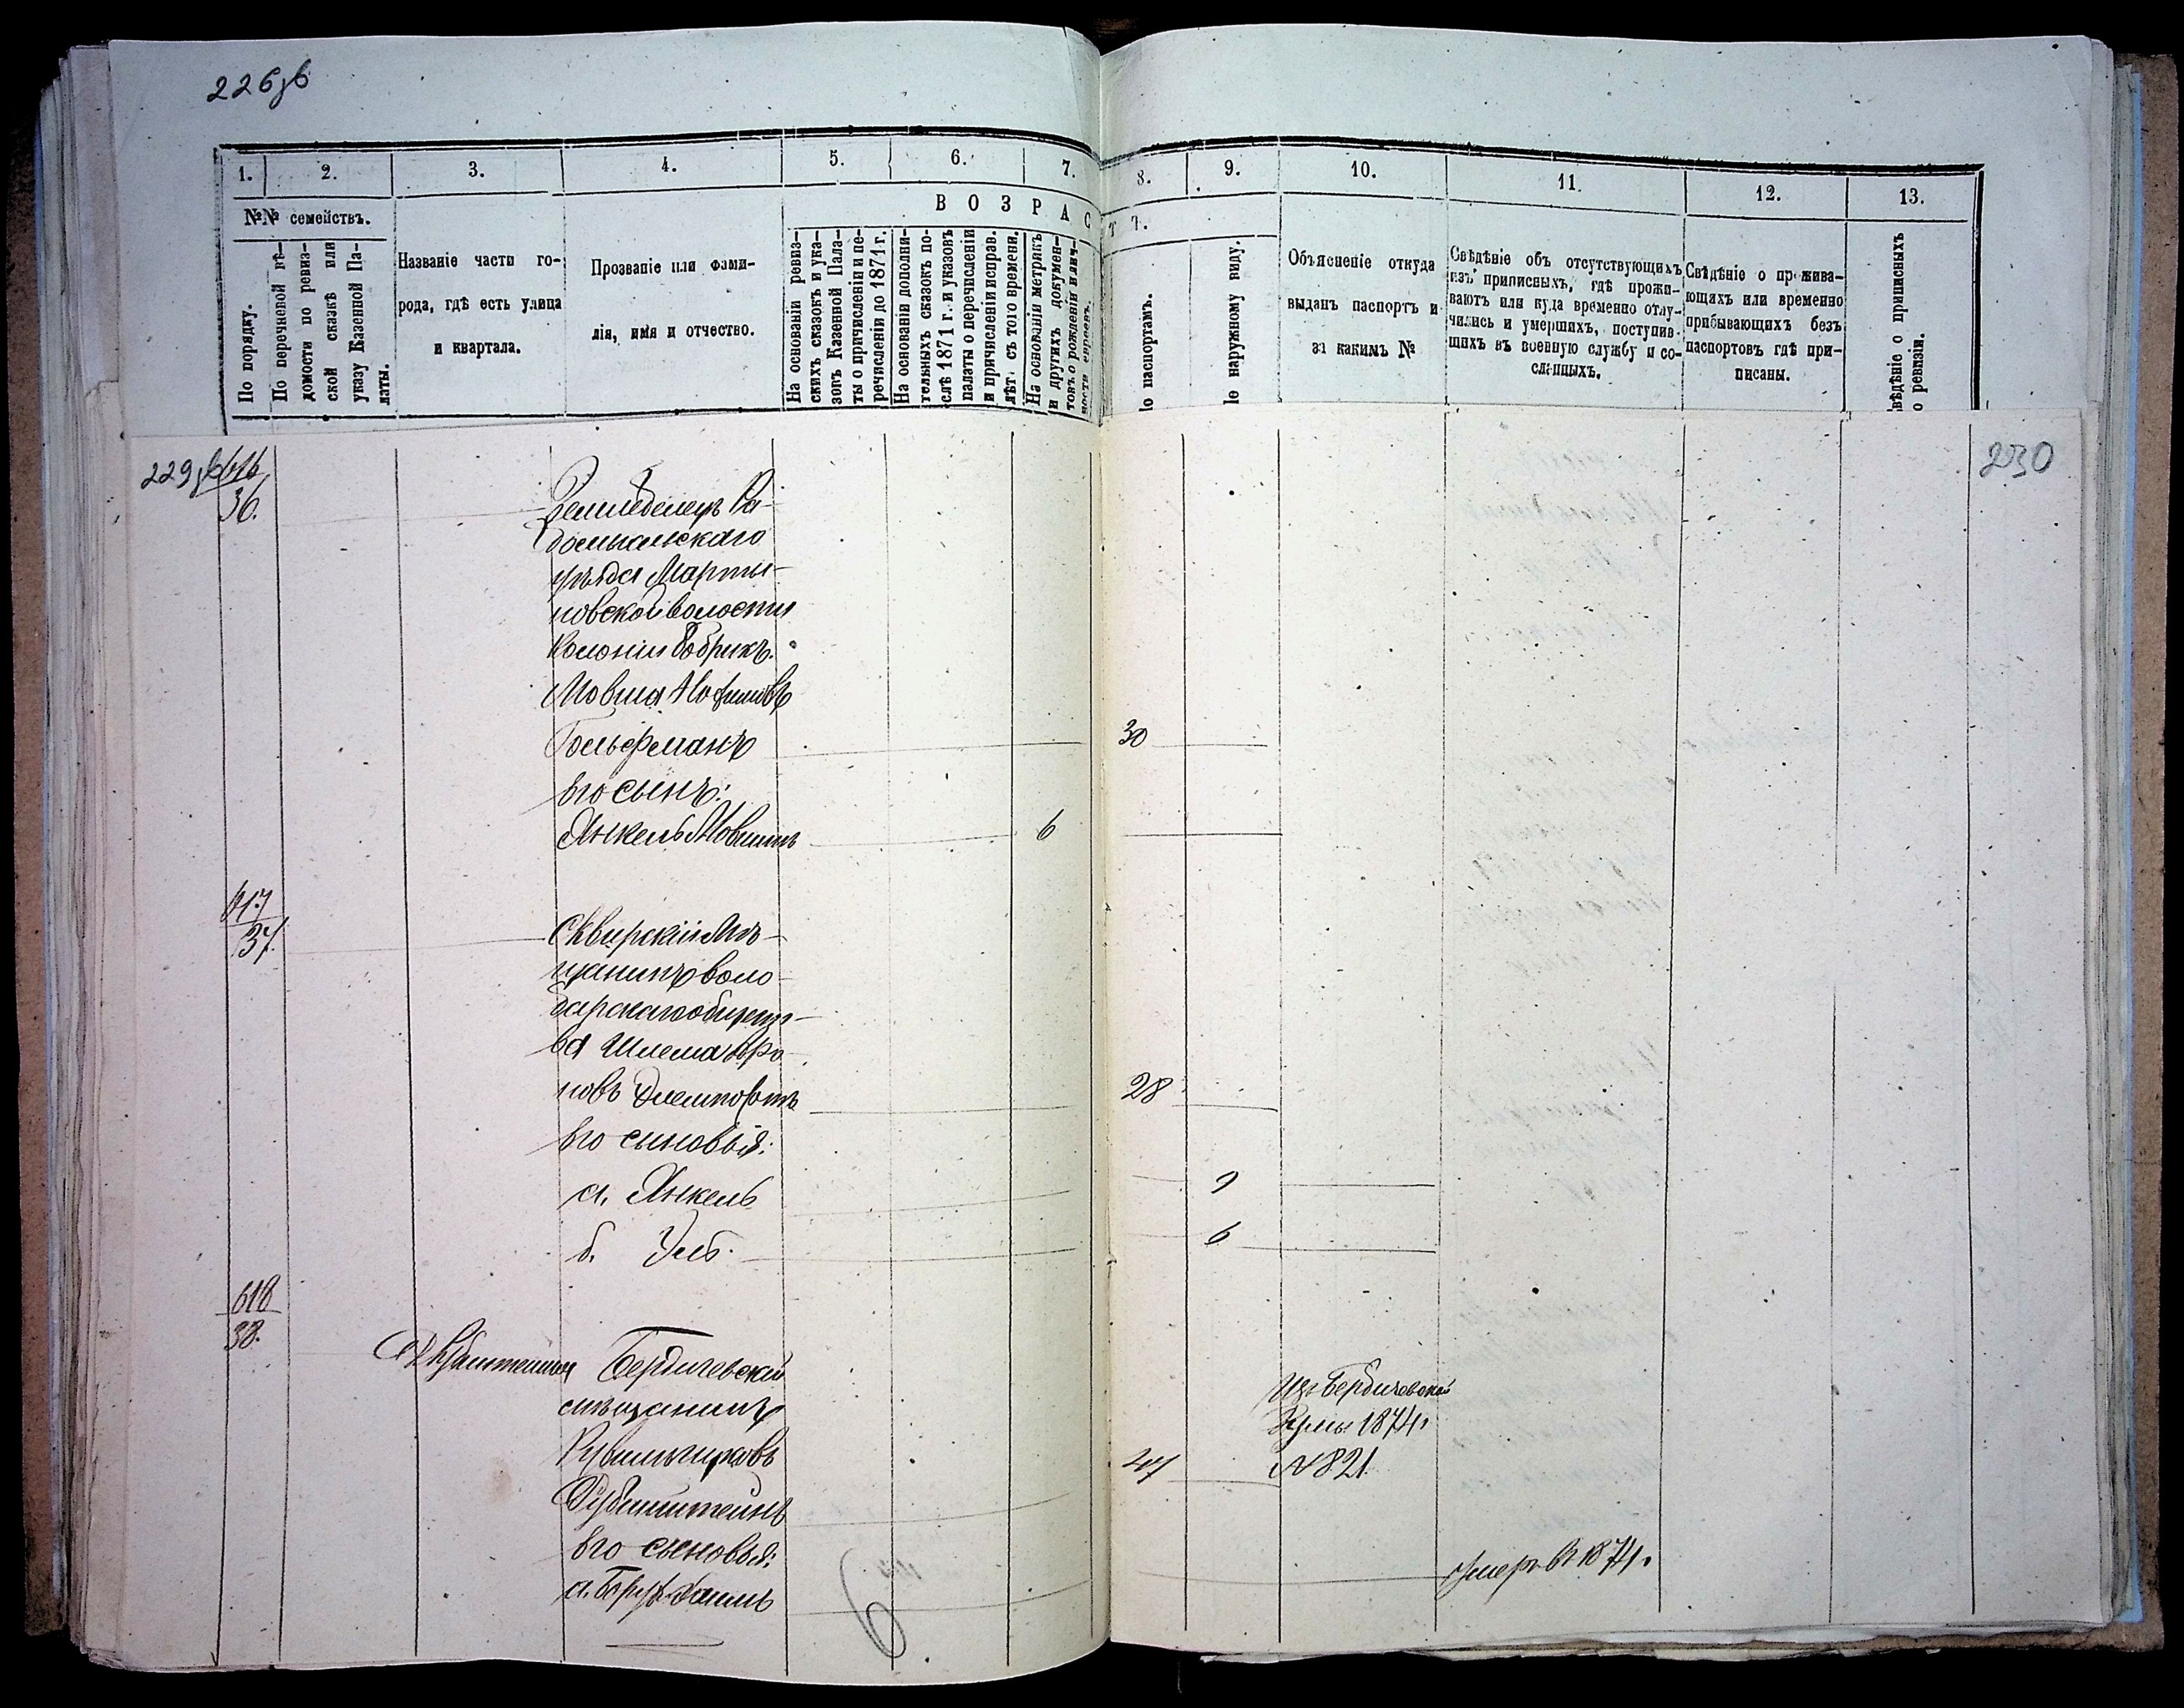 226об
1. 2. 3. 4. 5. 6. 7. 8. 9. 10. 11. 12. 13.
№№ семействъ.
ВОЗРАСТЪ.
По порядку.
По перечневой вѣ-
домости по ревиз-
ской сказкѣ или
указу Казенной Па-
латы.
Названіе части го-
рода, гдѣ есть улица
и квартала.
Прозваніе или фами-
лія, имя и отчество.
На основаніи ревиз-
скихъ сказокъ и ука-
зовъ Казенной Пала-
ты о причисленіи и пе-
речисленіи до 1871 г.
На основаніи дополни-
тельныхъ сказокъ по-
слѣ 1871 г. и указовъ
палаты о перечисленіи
и причисленіи исправ.
лѣт. съ того времени.
На основаніи метрикъ
и другихъ докумен-
товъ о рожденіи и лич-
ности евреевъ.
о паспортамъ.
о наружному виду.
Объясненіе откуда
выданъ паспортъ и
за какимъ №
Свѣдѣніе объ отсутствующихъ
изъ приписныхъ, гдѣ прожи-
ваютъ или куда временно отлу-
чились и умершихъ, поступив-
шихъ въ военную службу и со-
сланныхъ.
Свѣдѣніе о прожива-
ющихъ или временно
прибывающихъ безъ
паспортовъ гдѣ при-
писаны.
вѣдѣніе о приписныхъ
о ревизіи.
229об
230
616
36.
Земледелецъ Ра-
домысльскаго
уѣзда Марты-
новской волости
Колоніи
Мовша
Гольфманъ 30
его сынъ:
Янкель Мовшинъ 6
617
37.
Сквирскій Мѣ-
щанинъ Воло-
дарскаго общест-
ва Шлема Аро-
новъ 28
его сыновья:
а. Янкель 9
б. 6
618
38.
Бердичевскій
мѣщанинъ
Рубинштейнъ 47
его сыновья:
а. Борух
Изъ Бердичевской
1874 г.
№ 821
Умеръ въ 1874 г.